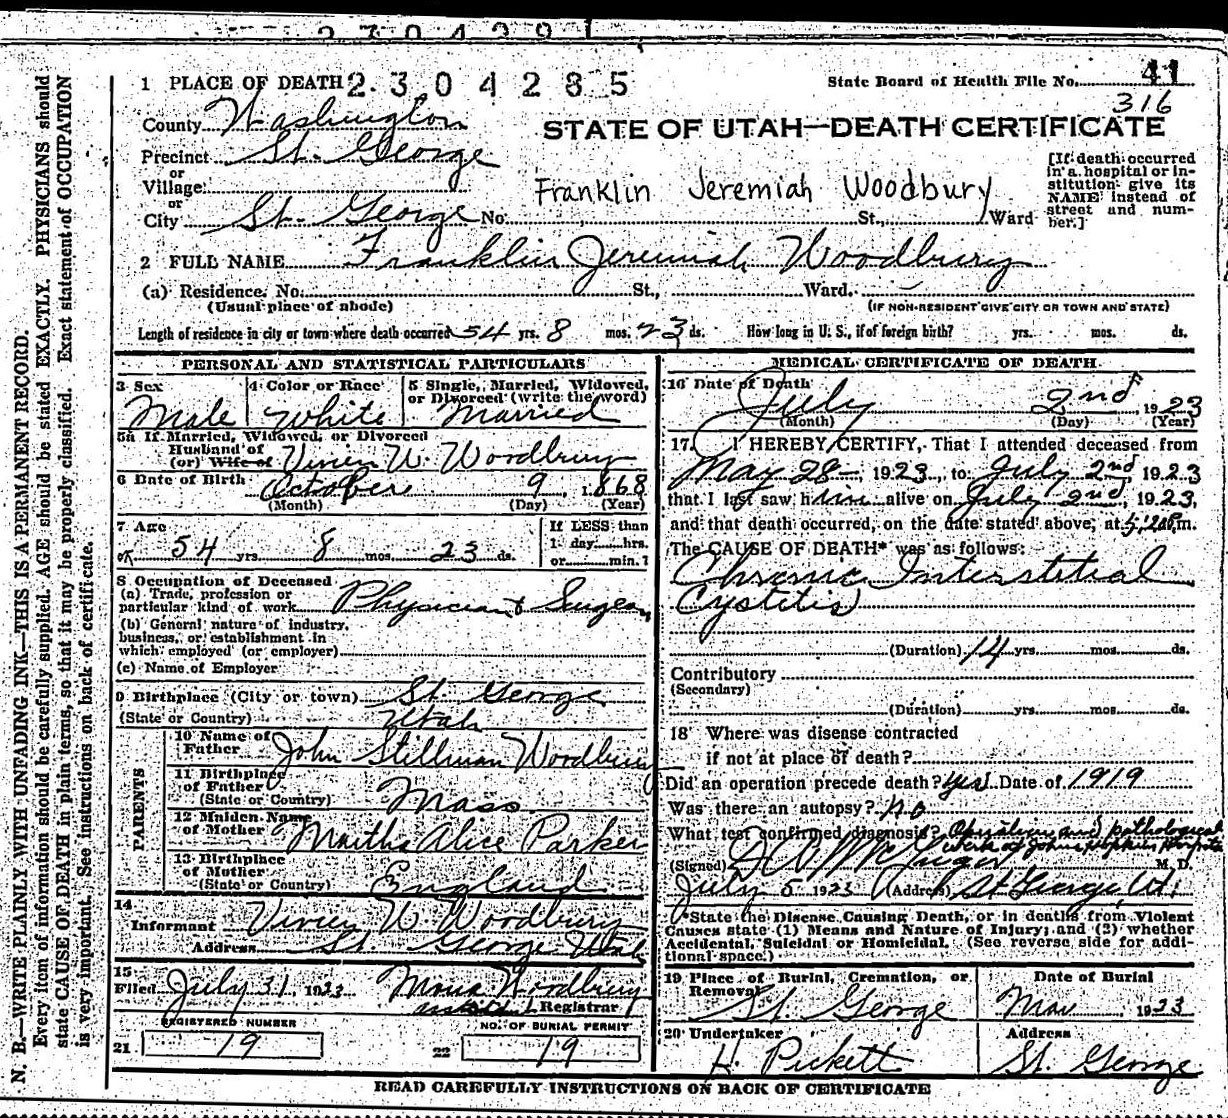 2304281
1 PLACE OF DEATH 2304285 State Board of Health File No. 41
316
County Washington
STATE OF UTAH—DEATH CERTIFICATE
Precinct St. George
or
Village
or
City St. George No. St., Ward
Franklin Jeremiah Woodbury
[If death occurred
in a hospital or in-
stitution give its
NAME instead of
street and num-
ber.]
2 FULL NAME Franklin Jeremiah Woodbury
(a) Residence. No. St., Ward.
(Usual place of abode) (IF NON-RESIDENT GIVE CITY OR TOWN AND STATE)
Length of residence in city or town where death occurred 54 yrs. 8 mos. 23 ds. How long in U. S., if of foreign birth? yrs. mos. ds.
PERSONAL AND STATISTICAL PARTICULARS
3 Sex
Male
4 Color or Race
White
5 Single, Married, Widowed,
or Divorced (write the word)
Married
5a If Married, Widowed, or Divorced
Husband of
(or) Wife of Vivien W. Woodbury
6 Date of Birth October 9, 1868
(Month) (Day) (Year)
7 Age
54 yrs. 8 mos. 23 ds.
If LESS than
1 day hrs.
or min.?
8 Occupation of Deceased
(a) Trade, profession or
particular kind of work Physician & Surgeon
(b) General nature of industry,
business, or establishment in
which employed (or employer)
(c) Name of Employer
9 Birthplace (City or town) St. George
(State or Country) Utah
PARENTS
10 Name of
Father John Stillman Woodbury
11 Birthplace
of Father
(State or Country) Mass
12 Maiden Name
of Mother Martha Alice Parker
13 Birthplace
of Mother
(State or Country) England
14
Informant Vivien W. Woodbury
Address St George Utah
15
Filed July 31 1923 Mona Woodbury
Registrar
REGISTERED NUMBER
21 19
NO. OF BURIAL PERMIT
22 19
MEDICAL CERTIFICATE OF DEATH
16 Date of Death
July 2nd, 1923
(Month) (Day) (Year)
17 I HEREBY CERTIFY, That I attended deceased from
May 28— 1923, to July 2nd 1923
that I last saw him alive on July 2nd, 1923,
and that death occurred, on the date stated above, at 5:20 p.m.
The CAUSE OF DEATH* was as follows:
Chronic Interstitial
Cystitis
(Duration) 14 yrs. mos. ds.
Contributory
(Secondary)
(Duration) yrs. mos. ds.
18 Where was disease contracted
if not at place of death?
Did an operation precede death? yes Date of 1919
Was there an autopsy? no
What test confirmed diagnosis? Operation and pathological
work of Johns Hopkins Hospital
(Signed) M. D.
July 5 1923 (Address) St George, Ut.
(*State the Disease Causing Death, or in deaths from Violent
Causes state (1) Means and Nature of Injury; and (2) whether
Accidental, Suicidal or Homicidal. (See reverse side for addi-
tional space.)
19 Place of Burial, Cremation, or
Removal St. George
Date of Burial
1923
20 Undertaker
H. Pickett
Address
St. George
READ CAREFULLY INSTRUCTIONS ON BACK OF CERTIFICATE
N. B.—WRITE PLAINLY WITH UNFADING INK—THIS IS A PERMANENT RECORD.
Every item of information should be carefully supplied. AGE should be stated EXACTLY. PHYSICIANS should
state CAUSE OF DEATH in plain terms, so that it may be properly classified. Exact statement of OCCUPATION
is very important. See instructions on back of certificate.